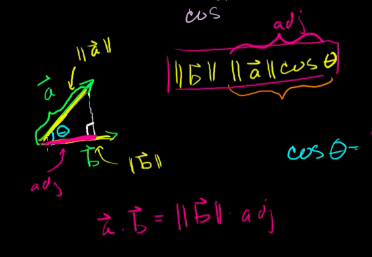 cos
adj
‖a⃗‖
‖b⃗‖ ‖a⃗‖cos θ
a⃗
θ
b⃗
‖b⃗‖
adj
cos θ=
a⃗ . b⃗ = ‖b⃗‖ · adj